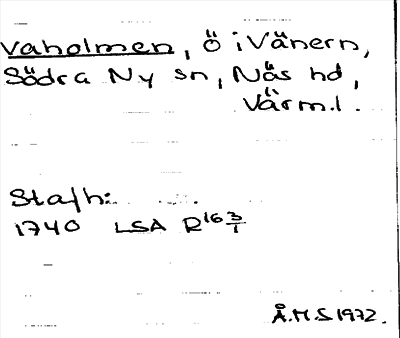 Vaholmen, ö i Vänern,
Södra Ny sn, Näs hd,
Värml.
1740 LSA R16 3/1
Å.M.S 1972.